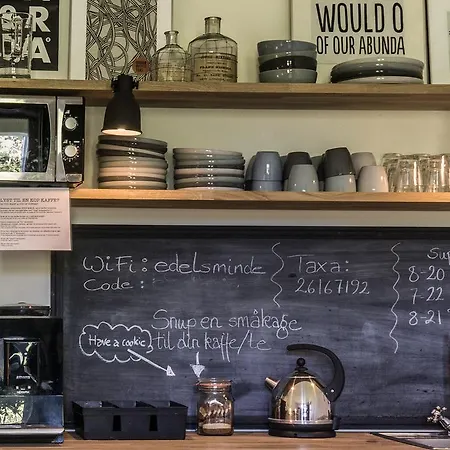 OR
DA
WOULD O
OF OUR ABUNDA
LYST TIL EN KOP KAFFE?
WiFi: edelsminde
Code:
Taxa:
26167192
Su
8-20
7-22
8-21
Snup en småkage
til din kaffe/te
Have a cookie